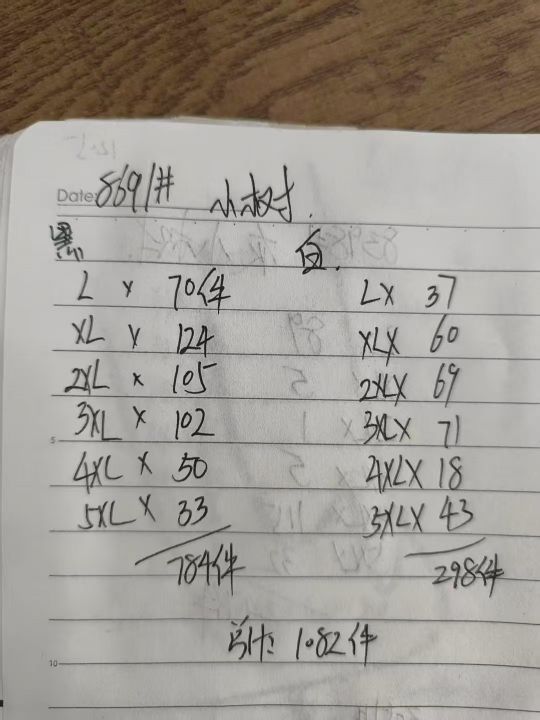 Date: 8691# 小树.
黑 白.
L x 70件 LX 37
XL x 124 XLX 60
2XL x 105 2XLX 69
3XL x 102 3XLX 71
4XL x 50 4XLX 18
5XL x 33 3XLX 43
784件 298件
总计: 1082件
5
10